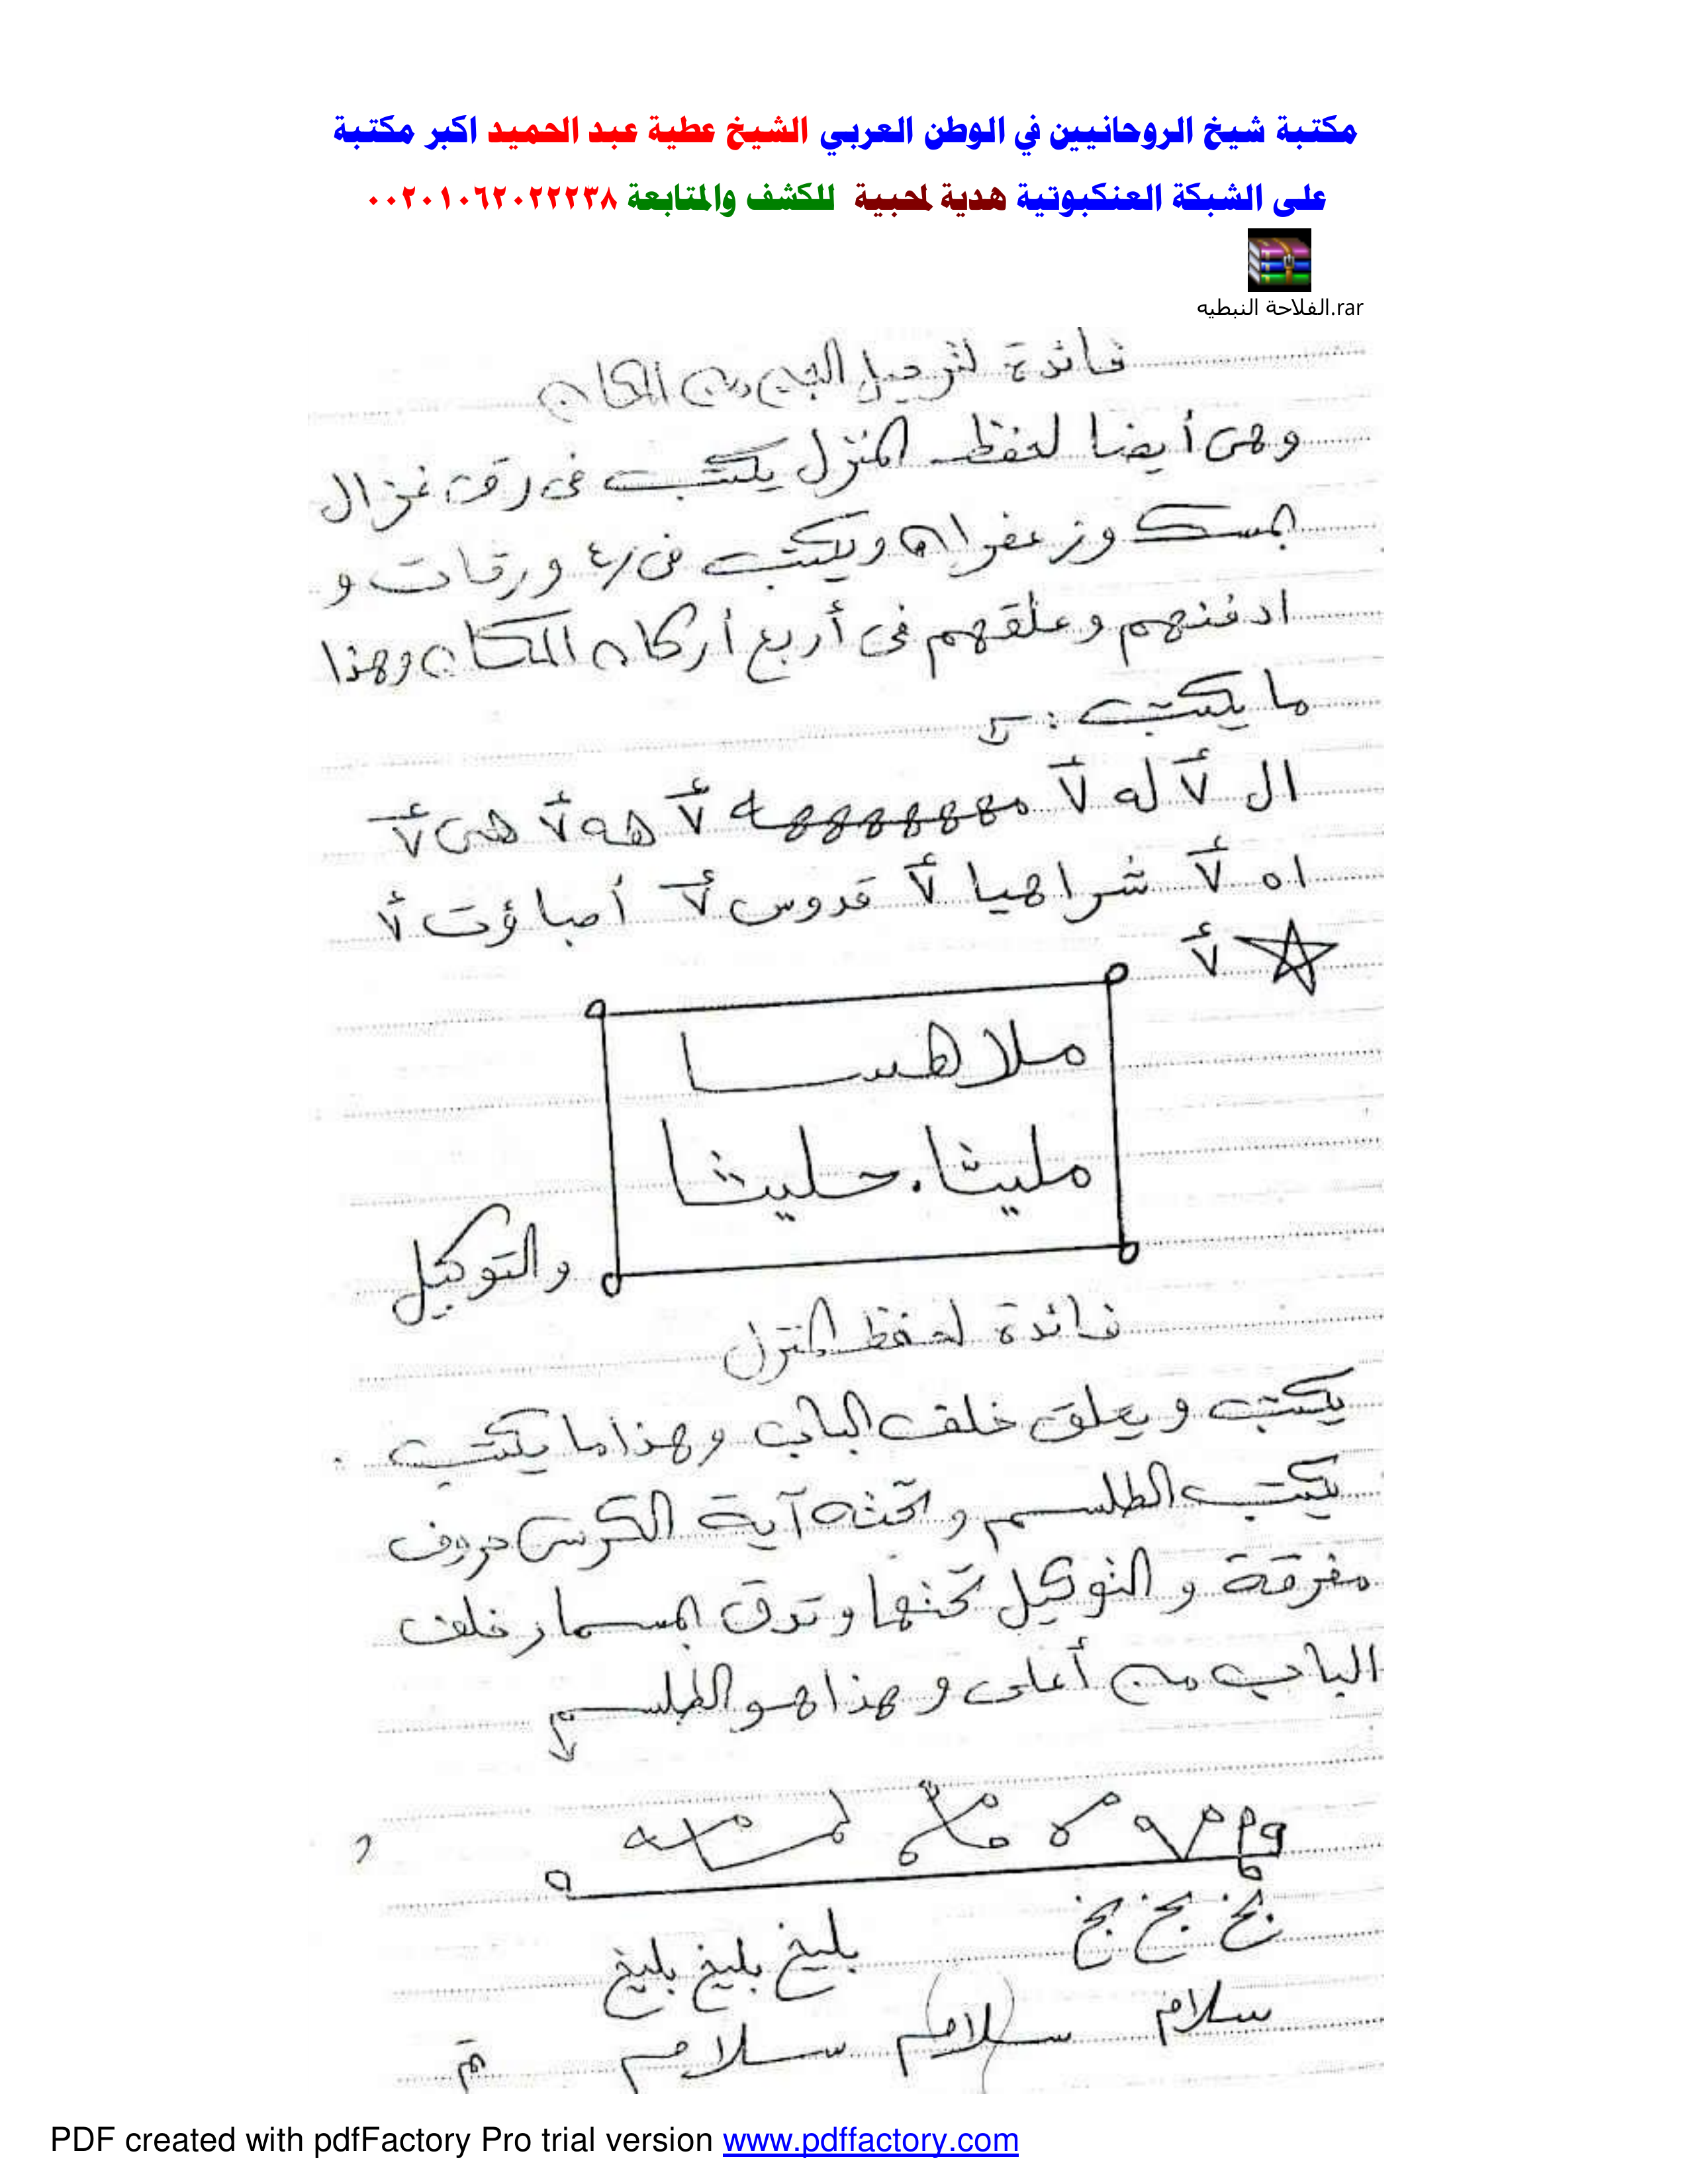 مكتبة شيخ الروحانيين في الوطن العربي الشيخ عطية عبد الحميد اكبر مكتبة
على الشبكة العنكبوتية هدية لمحبية للكشف والمتابعة ٠٠٢٠١٠٦٢٠٢٢٢٣٨
الفلاحة النبطيه.rar
فائدة لترحيل الجن من المكان
وهى أيضا لحفظ المنزل يكتب فى رق غزال
بمسك وزعفران ويكتب فى ٤ ورقات و
ادفنهم وعلقهم فى أربع أركان المكان وهذا
ما يكتب :
ال ٧أ له ٧أ مههههههههه ٧أ هه ٧أ هى ٧أ
اه ٧أ شراهيا ٧أ قدوس ٧أ أصباؤت ٧أ
☆ ٧أ
ملاهسا
مليثا . حليثا
والتوكيل
فائدة لحفظ المنزل
يكتب ويعلق خلف الباب وهذا ما يكتب .
يكتب الطلسم وتحته آية الكرسى حروف
مفرقة والتوكيل تحتها وتدق بمسمار خلف
الباب من أعلى وهذا هو الطلسم
بخ بخ بخ بليخ بليخ بليخ
سلام سلام سلام تم
PDF created with pdfFactory Pro trial version www.pdffactory.com